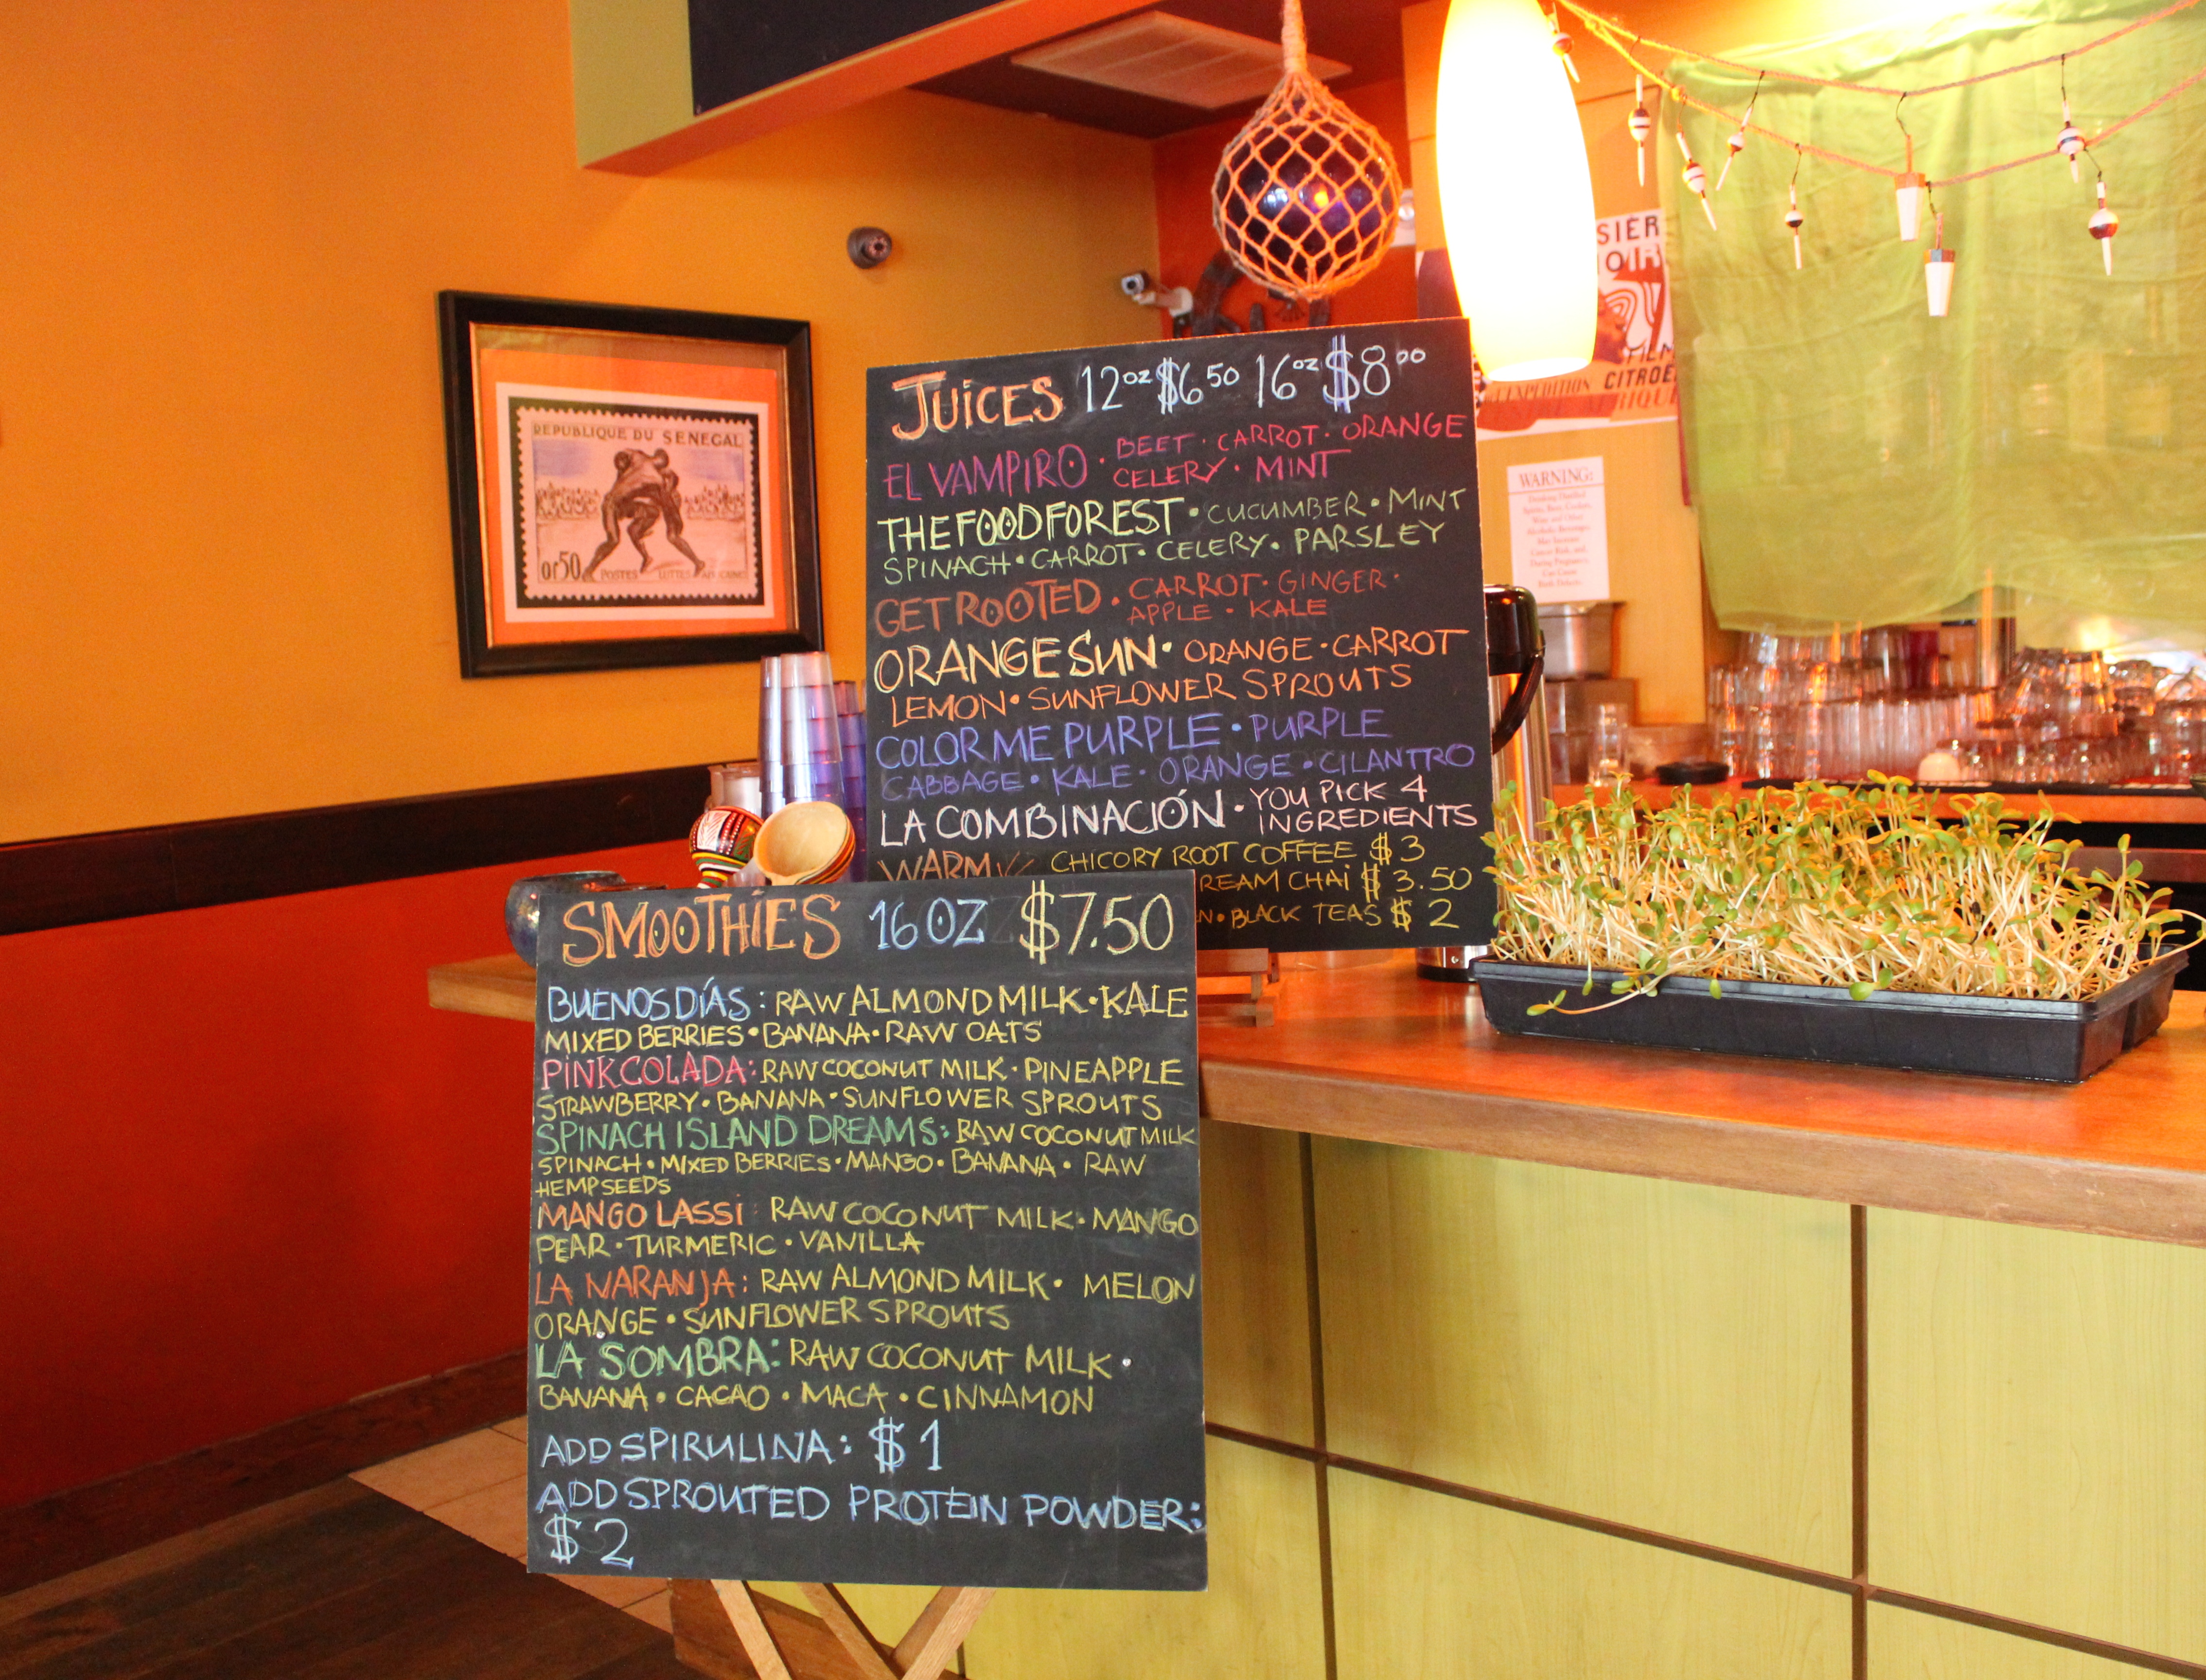 REPUBLIQUE DU SENEGAL
0f50 POSTES LUTTES AFRICAINE
JUICES 12oz $6.50 16oz $8.00
EL VAMPIRO • BEET • CARROT • ORANGE
CELERY • MINT
THE FOOD FOREST • CUCUMBER • MINT
SPINACH • CARROT • CELERY • PARSLEY
GET ROOTED • CARROT • GINGER •
APPLE • KALE
ORANGE SUN • ORANGE • CARROT
LEMON • SUNFLOWER SPROUTS
COLOR ME PURPLE • PURPLE
CABBAGE • KALE • ORANGE • CILANTRO
LA COMBINACIÓN • YOU PICK 4
INGREDIENTS
WARM CHICORY ROOT COFFEE $3
REAM CHAI $3.50
N • BLACK TEAS $2
SMOOTHIES 16 OZ $7.50
BUENOS DÍAS: RAW ALMOND MILK • KALE
MIXED BERRIES • BANANA • RAW OATS
PINK COLADA: RAW COCONUT MILK • PINEAPPLE
STRAWBERRY • BANANA • SUNFLOWER SPROUTS
SPINACH ISLAND DREAMS: RAW COCONUT MILK
SPINACH • MIXED BERRIES • MANGO • BANANA • RAW
HEMPSEEDS
MANGO LASSI: RAW COCONUT MILK • MANGO
PEAR • TURMERIC • VANILLA
LA NARANJA: RAW ALMOND MILK • MELON
ORANGE • SUNFLOWER SPROUTS
LA SOMBRA: RAW COCONUT MILK •
BANANA • CACAO • MACA • CINNAMON
ADD SPIRULINA: $1
ADD SPROUTED PROTEIN POWDER:
$2
SIÈR
OIR
FILM
L'EXPEDITION CITROË
RIQUE
WARNING:
Drinking Distilled
Spirits, Beer, Coolers,
Wine and Other
Alcoholic Beverages
May Increase
Cancer Risk, and,
During Pregnancy,
Can Cause
Birth Defects.